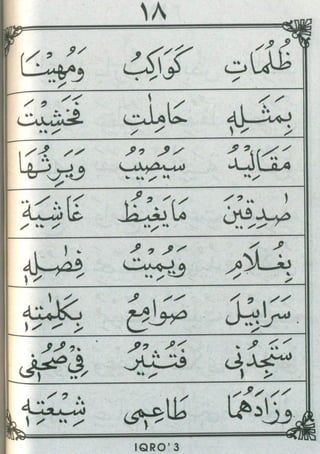 ١٨
ظُلُمَاتِ كَوَاكِبُ وَمُهِيْنًا
بِمَثَلِهٖ حَامِلٰتِ فَخَشِيْتَ
مَقَالِيْدُ سَيُصِيْبُ وَيَرِثُهَا
صٰدِقِيْنَ مَايَغِيْظُ غَاشِيَةِ
بِغُلَامِ وَيُمِيْتُ فِصٰلِهٖ
سَرَابِيْلَ صَوَامِعُ بِكَلِمٰتِهٖ
سَتَجِدُنِى فَتُثِيْرُ فِيْ صُحُفِى
وَزَادَهُمَا طَاعِمِى شِيْعَتِهٖ
IQRO' 3